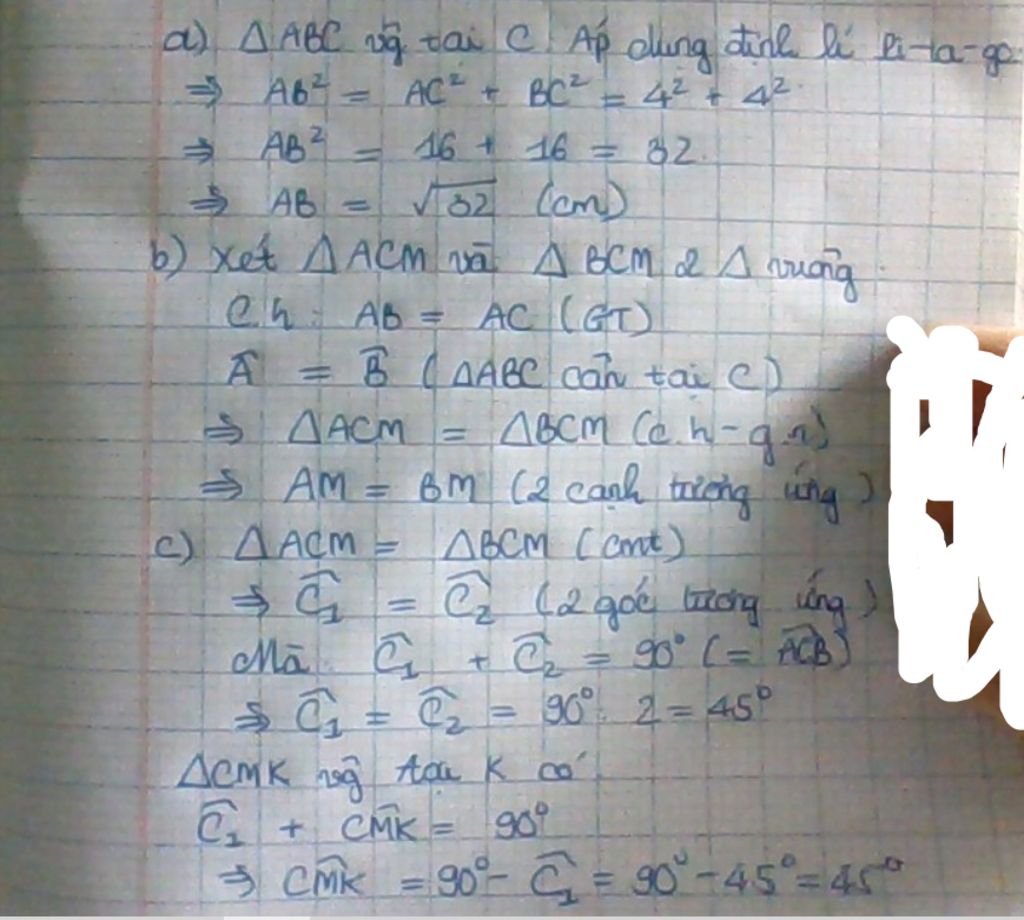 a) △ABC vg̃ tại C. Áp dụng định lí Pi-ta-go:
⇒ AB² = AC² + BC² = 4² + 4²
⇒ AB² = 16 + 16 = 32.
⇒ AB = √32 (cm)
b) Xét △ACM và △BCM 2 △ vuông
C.h: AB = AC (GT)
Â = B̂ (△ABC cân tại C)
⇒ △ACM = △BCM (c.h-g.n)
⇒ AM = BM (2 cạnh tương ứng)
c) △ACM = △BCM (cmt)
⇒ Ĉ₁ = Ĉ₂ (2 góc tương ứng)
Mà Ĉ₁ + Ĉ₂ = 90° (= ACB̂)
⇒ Ĉ₁ = Ĉ₂ = 90° : 2 = 45°
△CMK vg̃ tại K có
Ĉ₁ + CM̂K = 90°
⇒ CM̂K = 90° - Ĉ₁ = 90° - 45° = 45°